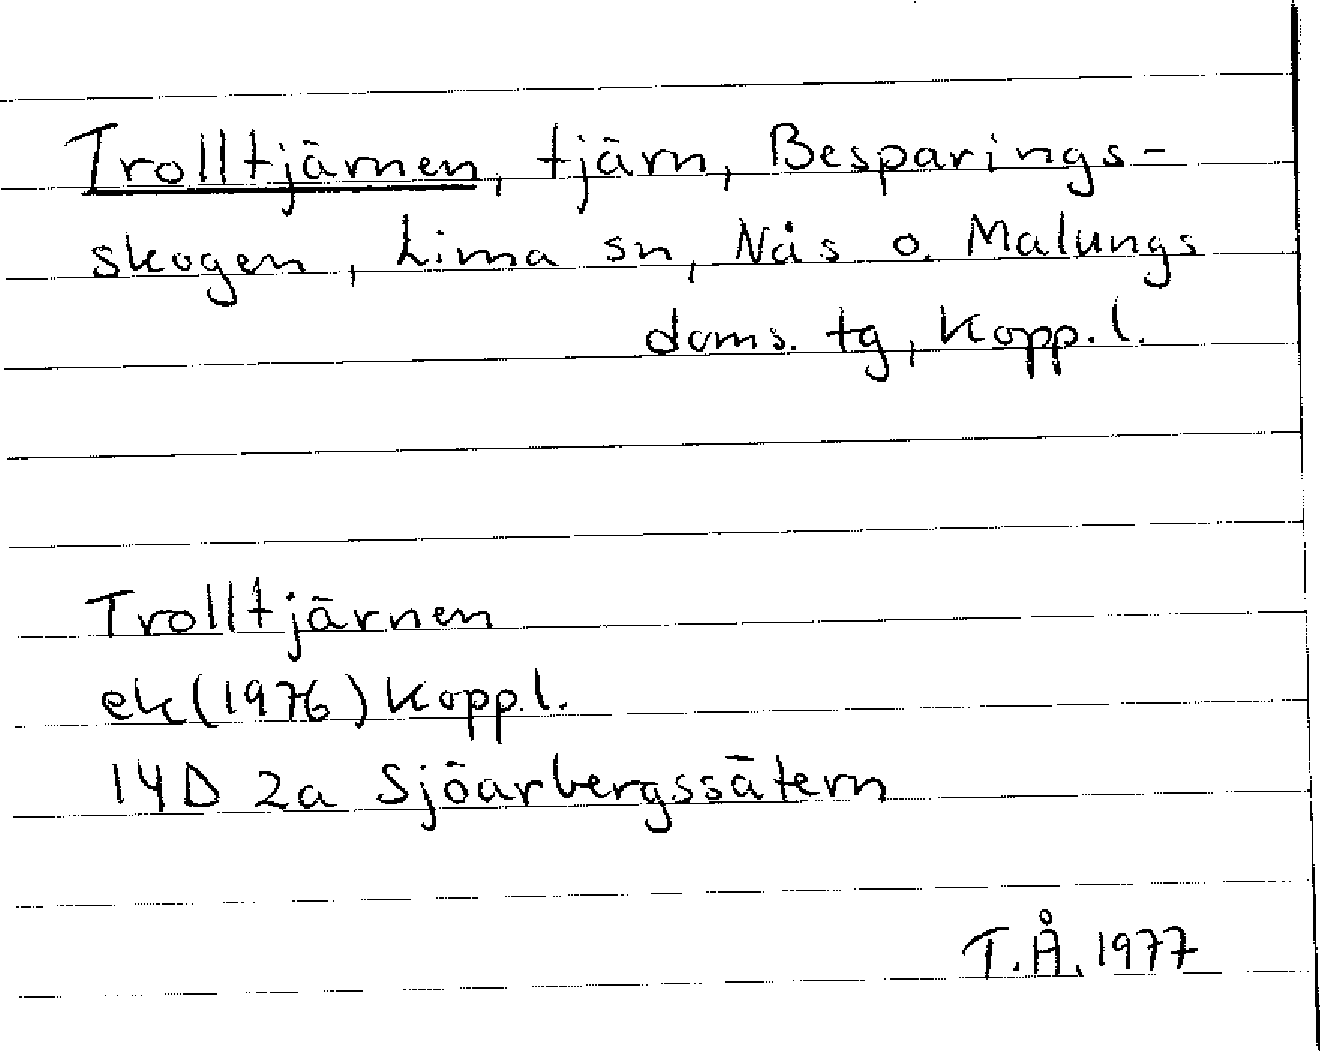 Trolltjärnen, tjärn, Besparings-
skogen, Lima sn, Nås o. Malungs
doms. tg, Kopp. l.
Trolltjärnen
ek (1976) Kopp.l.
14D 2a Sjöarbergssätern
T.Å. 1977